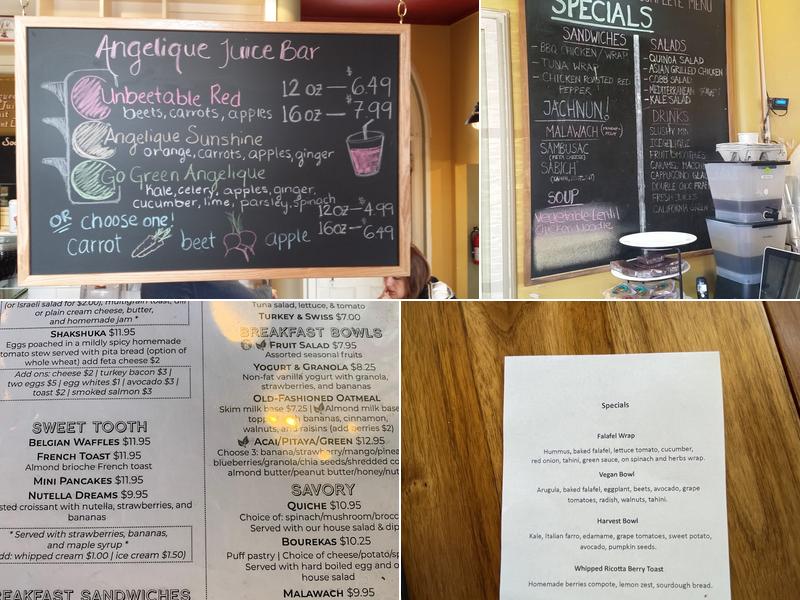 Angelique Juice Bar
Unbeetable Red
beets, carrots, apples
12 oz — $6.49
16 oz — $7.99
Angelique Sunshine
orange, carrots, apples, ginger
Go Green Angelique
kale, celery, apples, ginger,
cucumber, lime, parsley, spinach
OR choose one!
carrot beet apple
12oz — 4.99
16oz — 6.49
COMPLETE MENU
SPECIALS
SANDWICHES
- BBQ CHICKEN WRAP
- TUNA WRAP
- CHICKEN ROASTED RED
PEPPER
JACHNUN!
MALAWACH
SAMBUSAC
SABICH
SOUP
Vegetable Lentil
Chicken Noodle
SALADS
- QUINOA SALAD
- ASIAN GRILLED CHICKEN
- COBB SALAD
- MEDITERRANEAN
- KALE SALAD
DRINKS
SLUSHY MIN
ICE
FRUIT SMOOTHIES
CARAMEL
CAPPUCCINO
DOUBLE CHOC
FRESH JUICES
CALIFORNIA
(or Israeli salad for $2.00), multigrain toast,
or plain cream cheese, butter,
and homemade jam *
SHAKSHUKA $11.95
Eggs poached in a mildly spicy homemade
tomato stew served with pita bread (option of
whole wheat) add feta cheese $2
Add ons: cheese $2 | turkey bacon $3 |
two eggs $5 | egg whites $1 | avocado $3 |
toast $2 | smoked salmon $3
SWEET TOOTH
BELGIAN WAFFLES $11.95
FRENCH TOAST $11.95
Almond brioche French toast
MINI PANCAKES $11.95
NUTELLA DREAMS $9.95
sted croissant with nutella, strawberries, and
bananas
* Served with strawberries, bananas,
and maple syrup *
dd: whipped cream $1.00 | ice cream $1.50)
BREAKFAST SANDWICHES
Tuna salad, lettuce, & tomato
TURKEY & SWISS $7.00
BREAKFAST BOWLS
FRUIT SALAD $7.95
Assorted seasonal fruits
YOGURT & GRANOLA $8.25
Non-fat vanilla yogurt with granola,
strawberries, and bananas
OLD-FASHIONED OATMEAL
Skim milk base $7.25 | Almond milk base
bananas, cinnamon,
walnuts, and raisins (add berries $2)
ACAI/PITAYA/GREEN $12.95
Choose 3: banana/strawberry/mango/pinea
blueberries/granola/chia seeds/shredded co
almond butter/peanut butter/honey/nut
SAVORY
QUICHE $10.95
Choice of: spinach/mushroom/brocc
Served with our house salad & dip
BOUREKAS $10.25
Puff pastry | Choice of cheese/potato/sp
Served with hard boiled egg and o
house salad
MALAWACH $9.95
Specials
Falafel Wrap
Hummus, baked falafel, lettuce tomato, cucumber,
red onion, tahini, green sauce, on spinach and herbs wrap.
Vegan Bowl
Arugula, baked falafel, eggplant, beets, avocado, grape
tomatoes, radish, walnuts, tahini.
Harvest Bowl
Kale, Italian farro, edamame, grape tomatoes, sweet potato,
avocado, pumpkin seeds.
Whipped Ricotta Berry Toast
Homemade berries compote, lemon zest, sourdough bread.